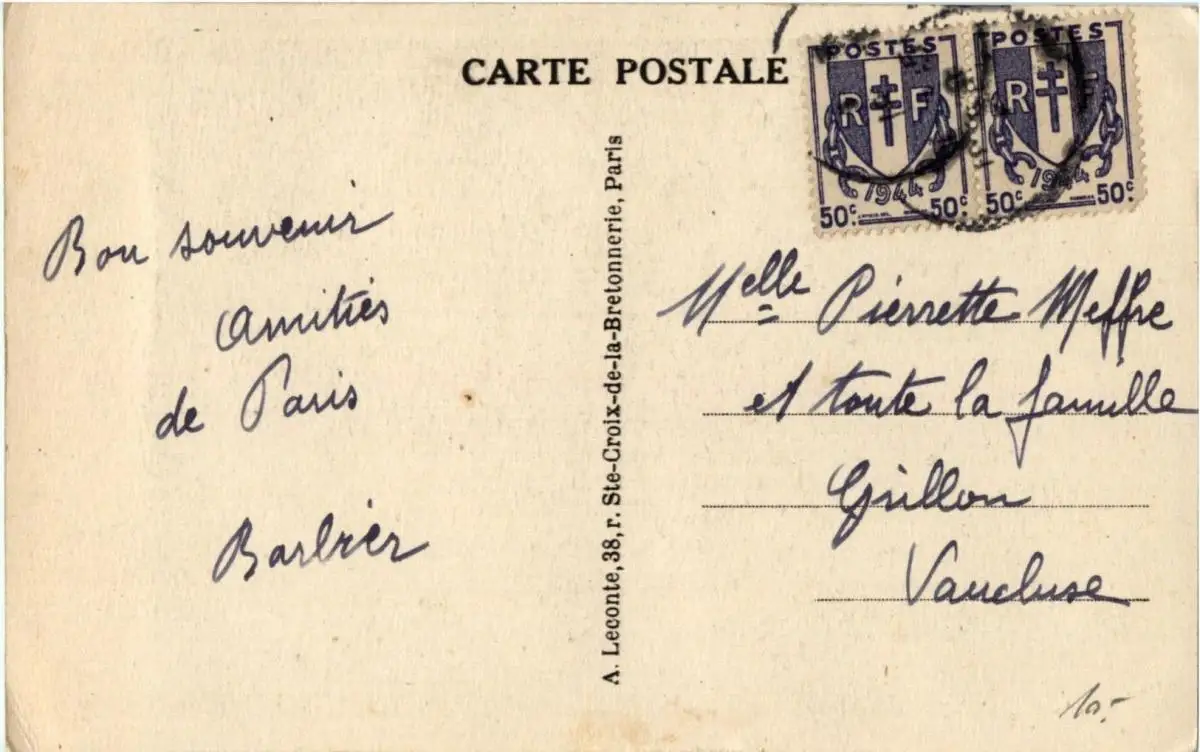 CARTE POSTALE
POSTES
RF
1944
50c 50c
POSTES
RF
1944
50c 50c
Bon souvenir
Amitiés
de Paris
Barbier
A. Leconte, 38, r. Ste-Croix-de-la-Bretonnerie, Paris
Melle Pierrette Meffre
et toute la famille
Grillon
Vaucluse